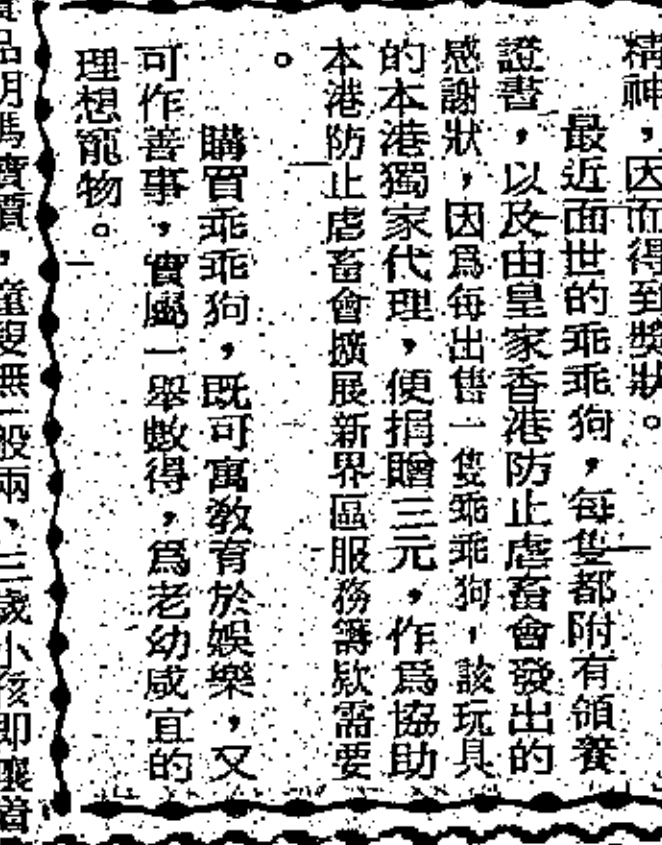 精神，因而得到獎狀。
最近面世的乖乖狗，每隻都附有領養
證書，以及由皇家香港防止虐畜會發出的
感謝狀，因爲每出售一隻乖乖狗，該玩具
的本港獨家代理，便捐贈三元，作爲協助
本港防止虐畜會擴展新界區服務籌欵需要
。
購買乖乖狗，既可寓敎育於娛樂，又
可作善事，實屬一舉數得，爲老幼咸宜的
理想寵物。
品明碼實價，童叟無欺，三歲小孩即